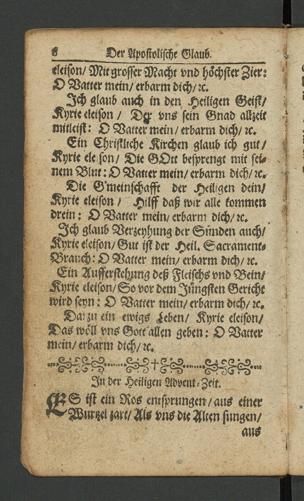 6 Der Apostolische Glaub.
eleison/ Mit grosser Macht vnd höchster Zier:
O Vatter mein/ erbarm dich/ ꝛc.
Jch glaub auch in den Heiligen Geist/
Kyrie eleison / Der vns sein Gnad allzeit
mitleist: O Vatter mein/ erbarm dich/ ꝛc.
Ein Christliche Kirchen glaub ich gut/
Kyrie eleison/ Die GOtt besprengt mit sei-
nem Blut: O Vatter mein/ erbarm dich/ ꝛc.
Die G'meinschafft der Heiligen dein/
Kyrie eleison / Hilff daß wir alle kommen
drein: O Vatter mein/ erbarm dich/ ꝛc.
Jch glaub Verzeyhung der Sünden auch/
Kyrie eleison/ Gut ist der Heil. Sacrament-
Brauch: O Vatter mein/ erbarm dich/ ꝛc.
Ein Aufferstehung deß Fleischs vnd Bein/
Kyrie eleison/ So vor dem Jüngsten Gericht
wird seyn: O Vatter mein/ erbarm dich/ ꝛc.
Dazu ein ewigs Leben/ Kyrie eleison/
Das wöll vns Gott allen geben: O Vatter
mein/ erbarm dich/ ꝛc.
In der Heiligen Advent-Zeit.
ES ist ein Ros entsprungen/ aus einer
Wurtzel zart/ Als vns die Alten sungen/
aus